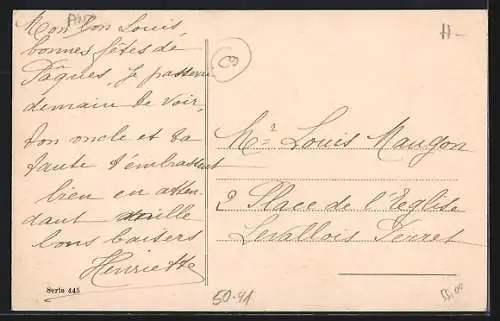 Mon bon Louis,
bonnes fêtes de
Pâques, je passerai
demain te voir,
ton oncle et ta
tante t'embrassent
bien en atten-
dant mille
bons baisers
Henriette
Serie 445
9
H-
Mr Louis Maugon
2 Place de l'Eglise
Levallois Perret
50-41